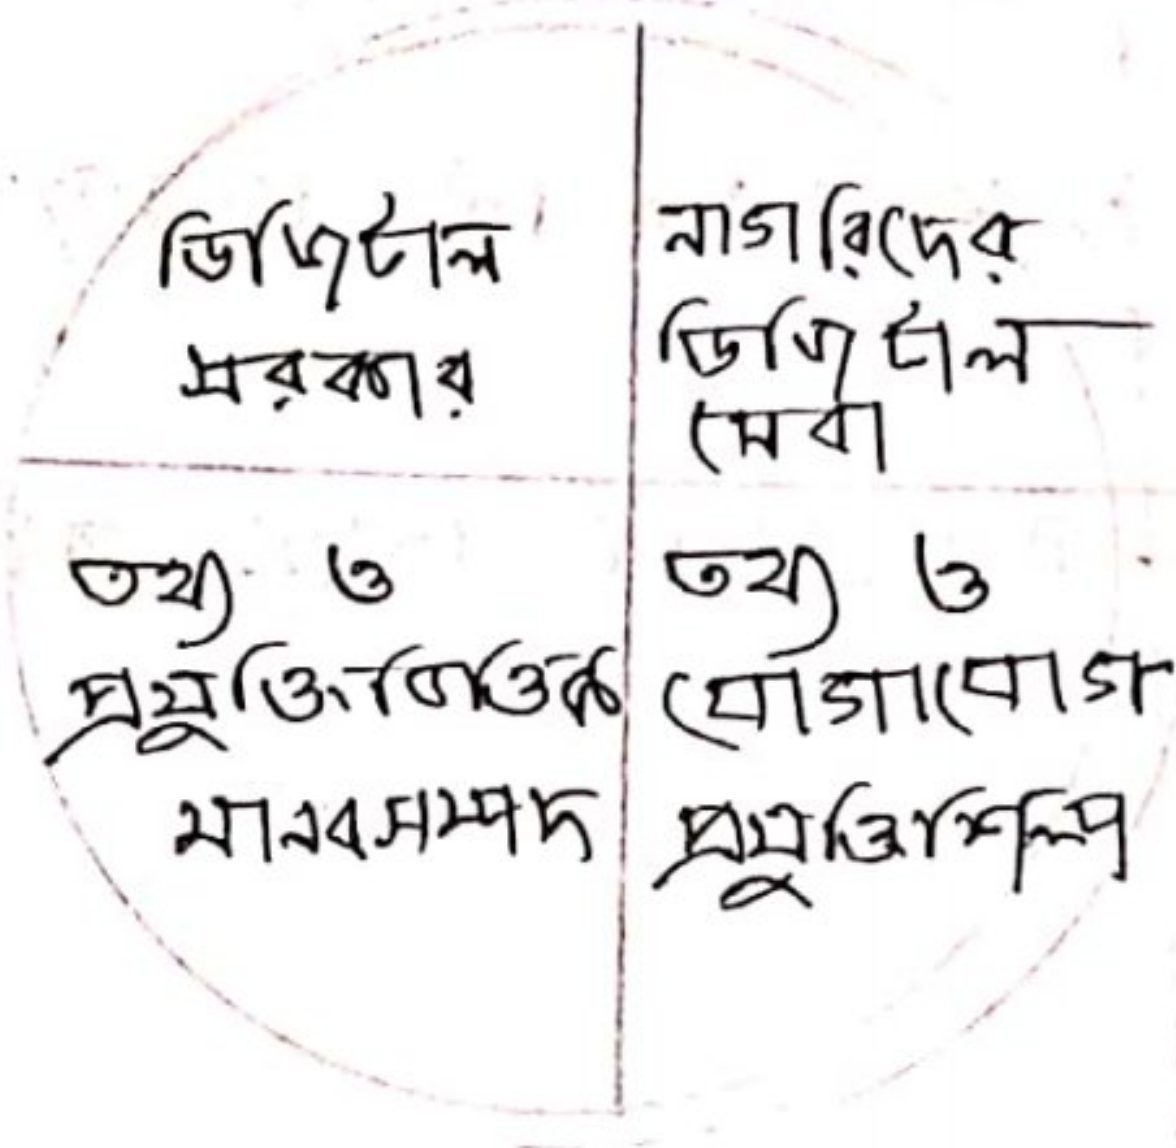 ডিজিটাল
সরকার
নাগরিদের
ডিজিটাল
সেবা
তথ্য ও
প্রযুক্তিভিত্তিক
মানবসম্পদ
তথ্য ও
যোগাযোগ
প্রযুক্তিশিল্প